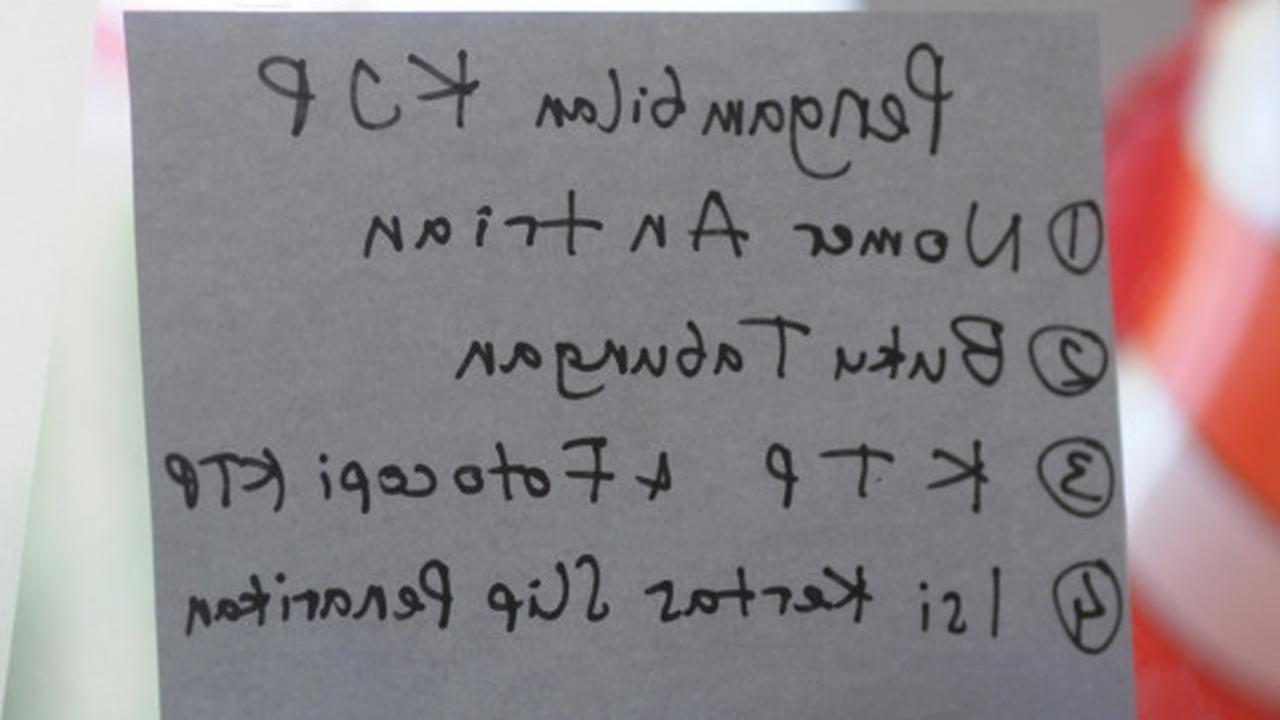 Pengambilan KJP
① Nomer Antrian
② Buku Tabungan
③ KTP & Fotocopi KTP
④ Isi Kertas Slip Penarikan